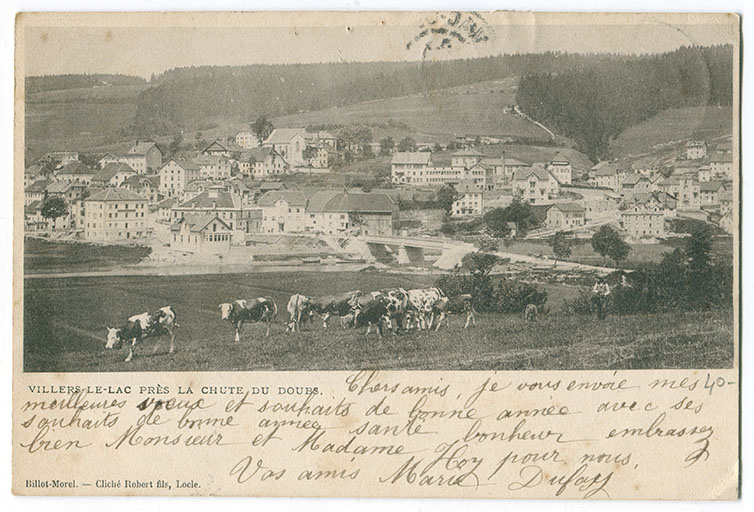 VILLERS-LE-LAC PRÈS LA CHUTE DU DOUBS.
Chers amis, je vous envoie mes 40-
meilleures voeux et souhaits de bonne année avec ses
souhaits de bonne année santé bonheur embrassez
bien Monsieur et Madame Hoy pour nous.
Vos amis Marie Dufay
Billot-Morel. — Cliché Robert fils, Locle.